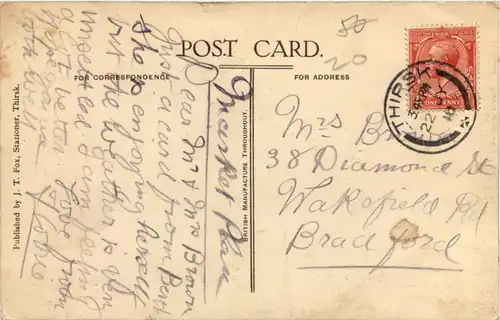 POST CARD.
FOR CORRESPONDENCE
FOR ADDRESS
50
20
Market Place
Dear Mr & Mrs Brown
Just a card from
She is enjoying herself
but the weather is very
unsettled I am feeling
a lot better
Hope you are
with love
Love from
BRITISH MANUFACTURE THROUGHOUT.
Published by J. T. Fox, Stationer, Thirsk.
Mrs
38 Diamond St
Wakefield Rd
Bradford
THIRSK
22
ONE PENNY